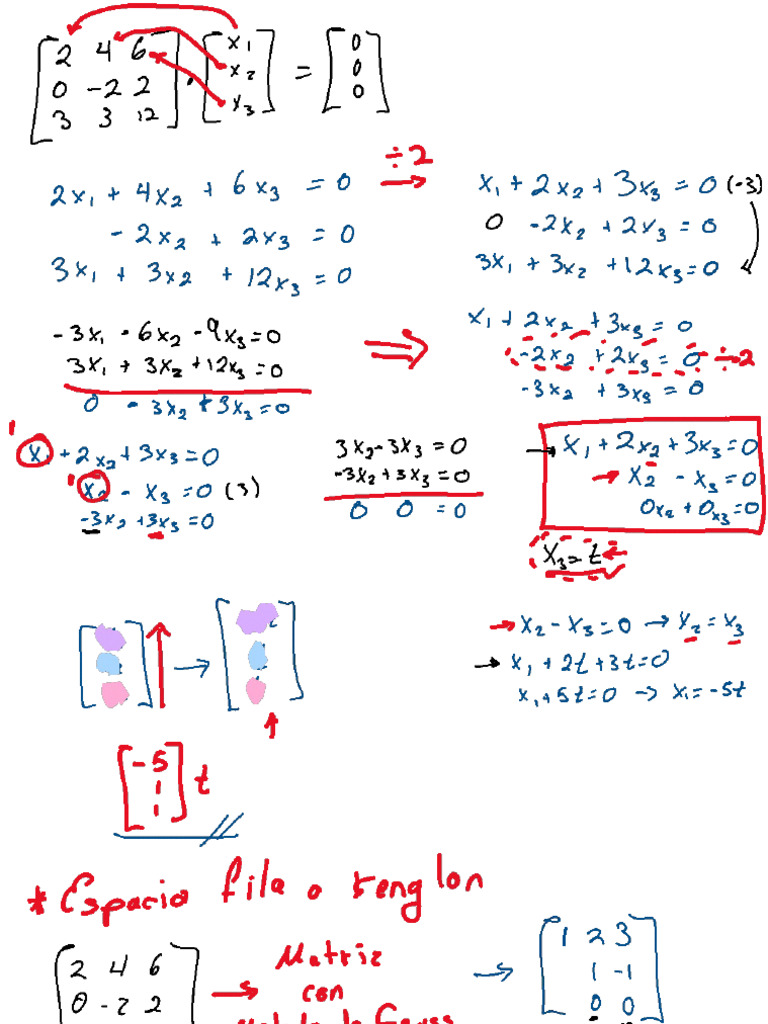 [2 4 6; 0 -2 2; 3 3 12] · [x1; x2; x3] = [0; 0; 0]
÷2
2x1 + 4x2 + 6x3 = 0
-2x2 + 2x3 = 0
3x1 + 3x2 + 12x3 = 0
x1 + 2x2 + 3x3 = 0 (-3)
0 -2x2 + 2x3 = 0
3x1 + 3x2 + 12x3 = 0
-3x1 - 6x2 - 9x3 = 0
3x1 + 3x2 + 12x3 = 0
0 - 3x2 + 3x3 = 0
⇒
x1 + 2x2 + 3x3 = 0
-2x2 + 2x3 = 0 ÷2
-3x2 + 3x3 = 0
x1 + 2x2 + 3x3 = 0
x2 - x3 = 0 (3)
-3x2 + 3x3 = 0
3x2 - 3x3 = 0
-3x2 + 3x3 = 0
0 0 = 0
→ x1 + 2x2 + 3x3 = 0
→ x2 - x3 = 0
0x2 + 0x3 = 0
x3 = t ←
→ x2 - x3 = 0 → x2 = x3
→ x1 + 2t + 3t = 0
x1 + 5t = 0 → x1 = -5t
[-5; 1; 1] t
* Espacio fila o renglon
2 4 6
0 -2 2
→ Matriz
con
→ 1 2 3
1 -1
0 0